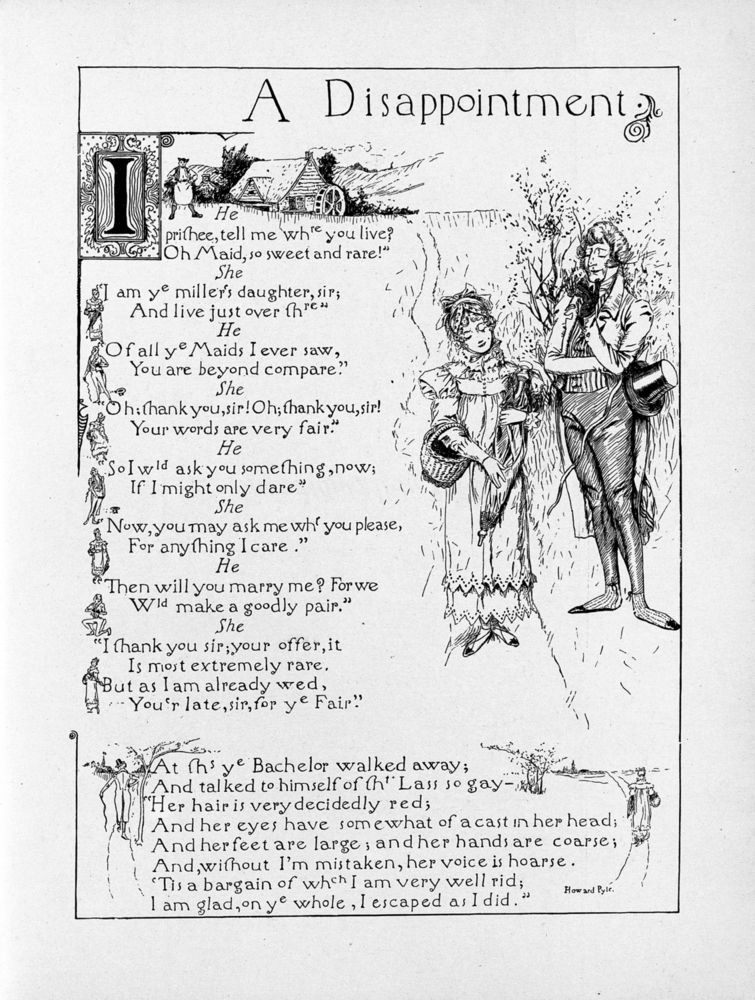 A Disappointment
He
I prithee, tell me whre you live?
Oh Maid, so sweet and rare!"
She
"I am ye miller's daughter, sir;
And live just over thre"
He
"Of all ye Maids I ever saw,
You are beyond compare."
She
"Oh; thank you, sir! Oh; thank you, sir!
Your words are very fair."
He
"So I wld ask you something, now;
If I might only dare"
She
"Now, you may ask me wht you please,
For anything I care."
He
"Then will you marry me? For we
Wld make a goodly pair."
She
"I thank you sir; your offer, it
Is most extremely rare.
But as I am already wed,
You'r late, sir, for ye Fair."
At ths ye Bachelor walked away;
And talked to himself of tht Lass so gay—
"Her hair is very decidedly red;
And her eyes have somewhat of a cast in her head;
And her feet are large; and her hands are coarse;
And, without I'm mistaken, her voice is hoarse.
'Tis a bargain of whch I am very well rid;
I am glad, on ye whole, I escaped as I did."
Howard Pyle.